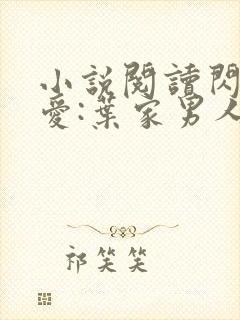 小說閱讀閃
愛:葉家男人
祁笑笑